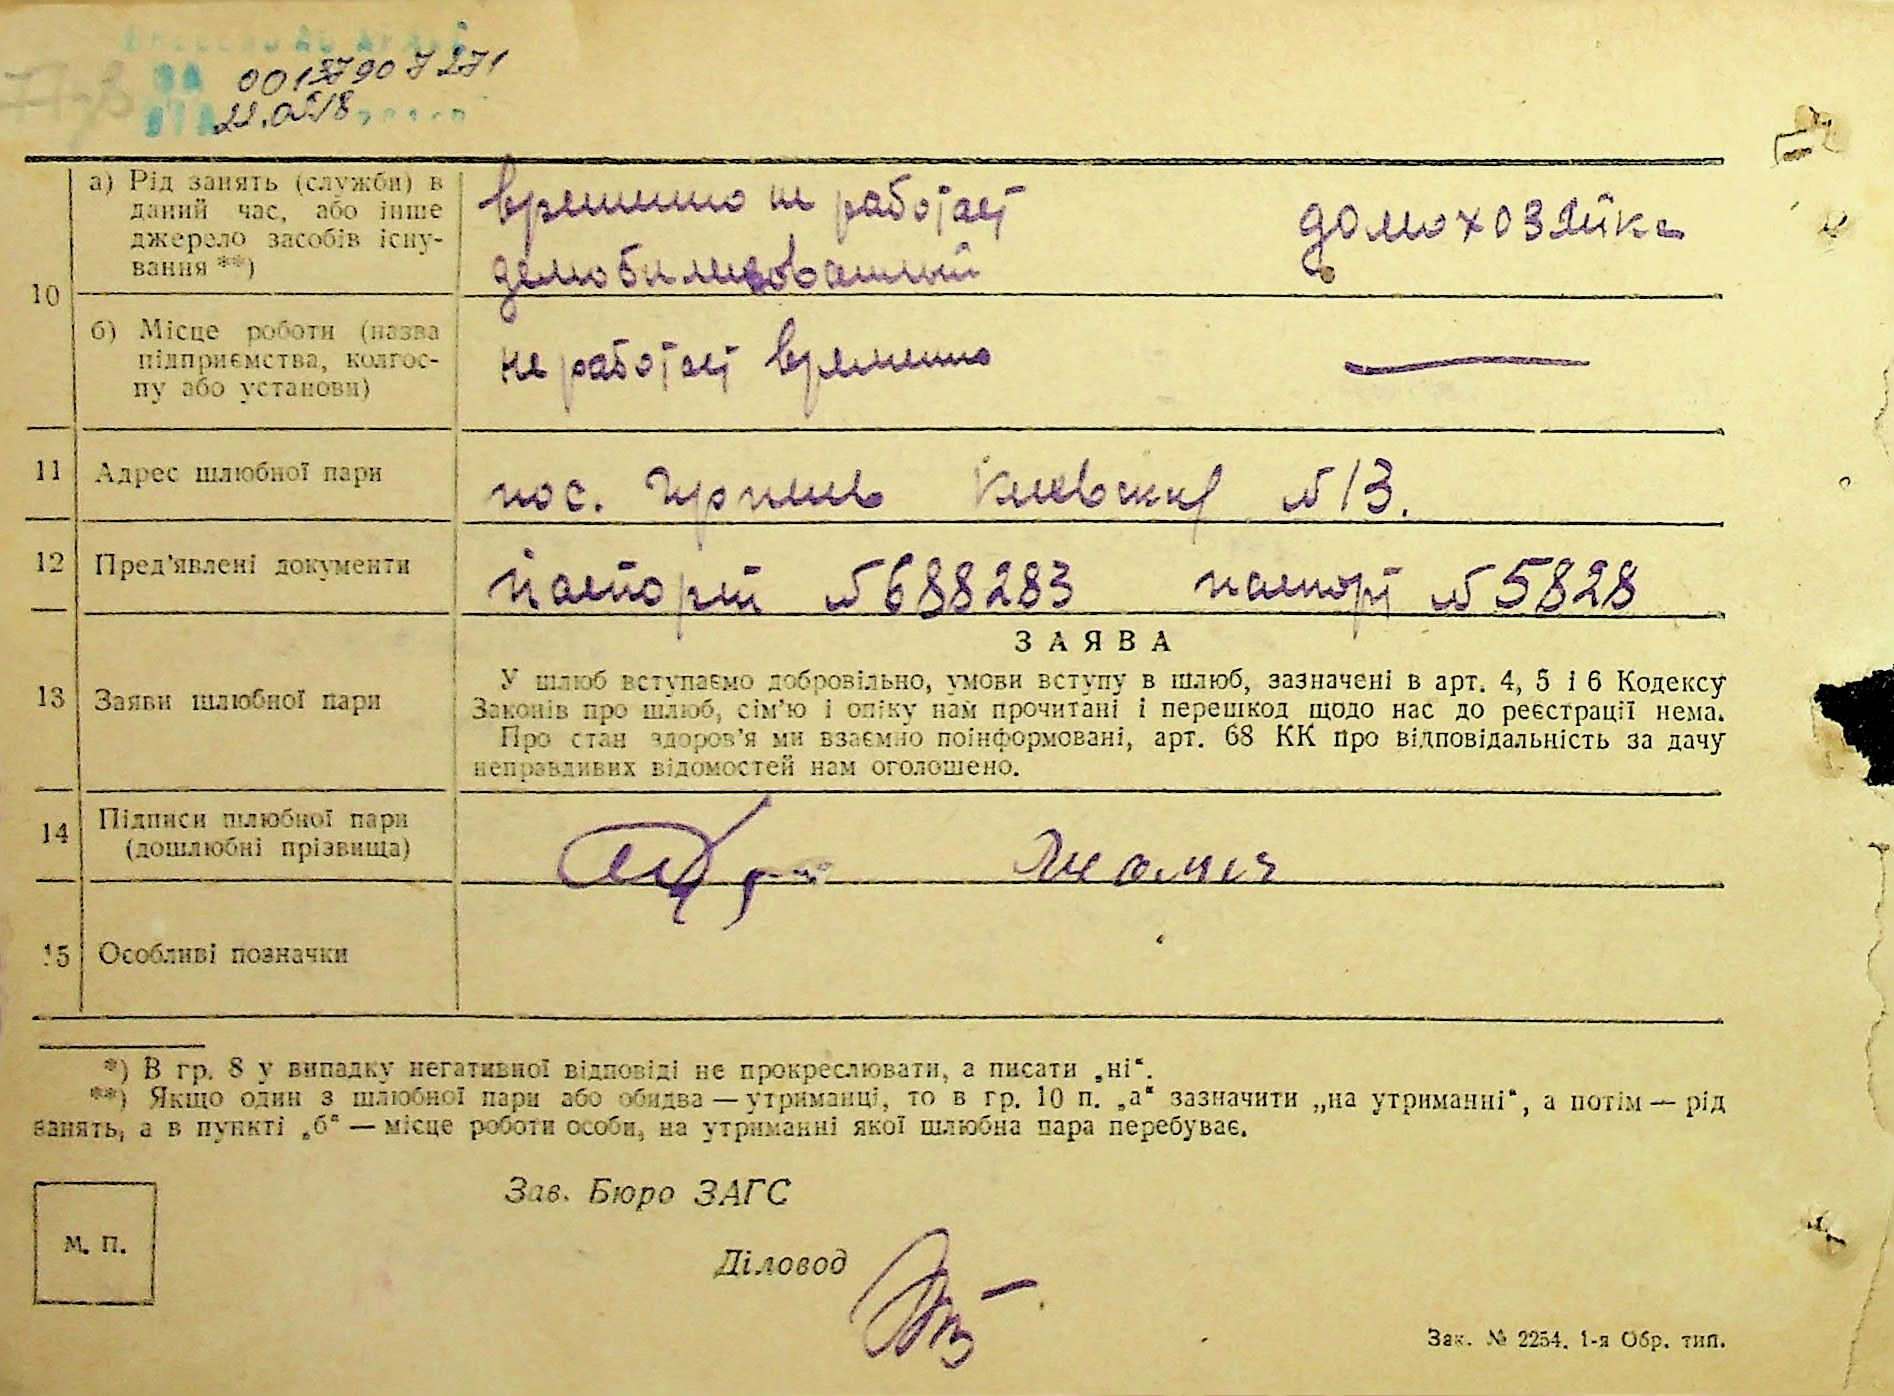 00137907271
22.05.18
а) Рід занять (служби) в
даний час, або інше
джерело засобів існу-
вання **)
временно не работает
демобилизованный
домохозяйка
10
б) Місце роботи (назва
підприємства, колгос-
пу або установи)
не работает временно
11 Адрес шлюбної пари
пос. Ирпень Киевская №13.
12 Пред'явлені документи
паспорт №688283 паспорт №5828
ЗАЯВА
13 Заяви шлюбної пари
У шлюб вступаємо добровільно, умови вступу в шлюб, зазначені в арт. 4, 5 і 6 Кодексу
Законів про шлюб, сім'ю і опіку нам прочитані і перешкод щодо нас до реєстрації нема.
Про стан здоров'я ми взаємно поінформовані, арт. 68 КК про відповідальність за дачу
неправдивих відомостей нам оголошено.
14 Підписи шлюбної пари
(дошлюбні прізвища)
15 Особливі позначки
*) В гр. 8 у випадку негативної відповіді не прокреслювати, а писати „ні“.
**) Якщо один з шлюбної пари або обидва — утриманці, то в гр. 10 п. „а“ зазначити „на утриманні“, а потім — рід
занять, а в пункті „б“ — місце роботи особи, на утриманні якої шлюбна пара перебуває.
Зав. Бюро ЗАГС
М. П.
Діловод
Зак. № 2254. 1-я Обр. тип.